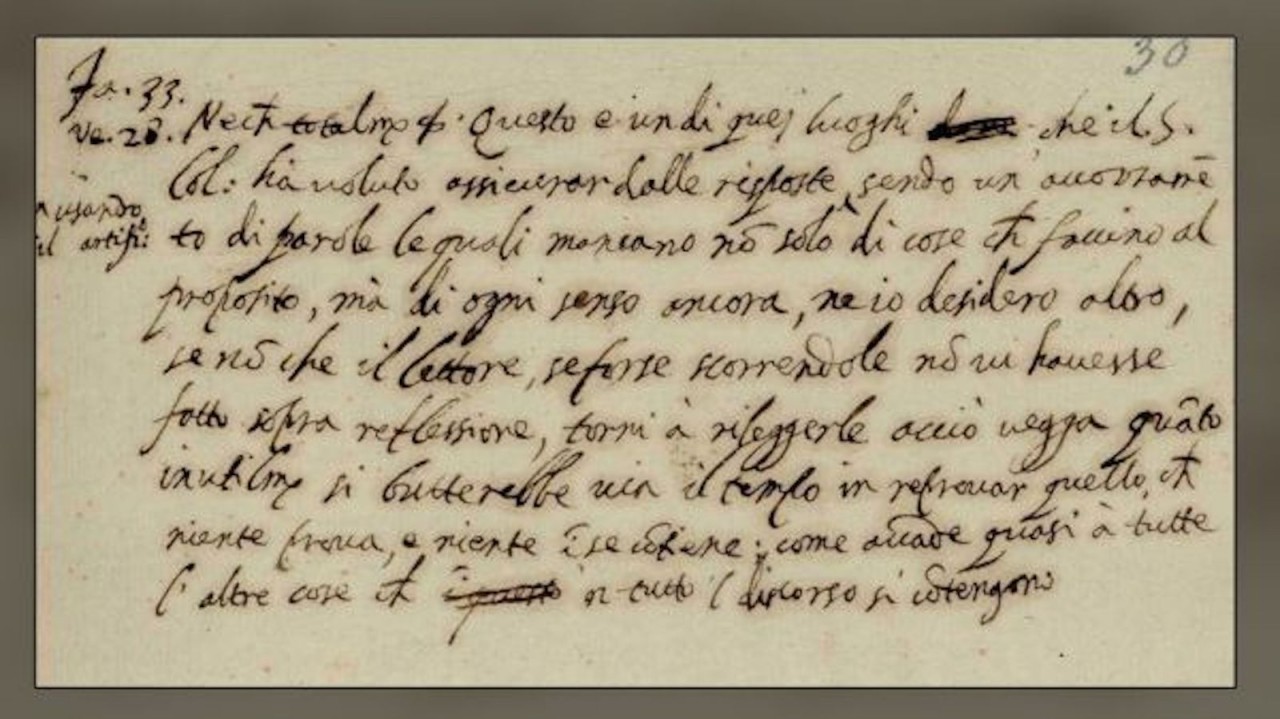 30
Fa. 33.
ve. 28. Nech totalmo &. Questo e un di quej luoghi che il S.
Col: ha voluto assicurar dalle risposte, sendo un accozzamē
n usando,
il artifi: to di parole le quali mancano nō solo di cose ch faccino al
proposito, mà di ogni senso ancora, ne io desidero altro,
se nō che il lettore, se forse scorrendole nō vi havesse
fatto sopra reflessione, torni à rileggerle acciò vegga quāto
inutilmo si butterebbe via il tempo in reprovar quello, ch
niente prova, e niente ī se cōtiene; come accade quasi à tutte
l'altre cose ch ī questo in tutto l discorso si cōtengono